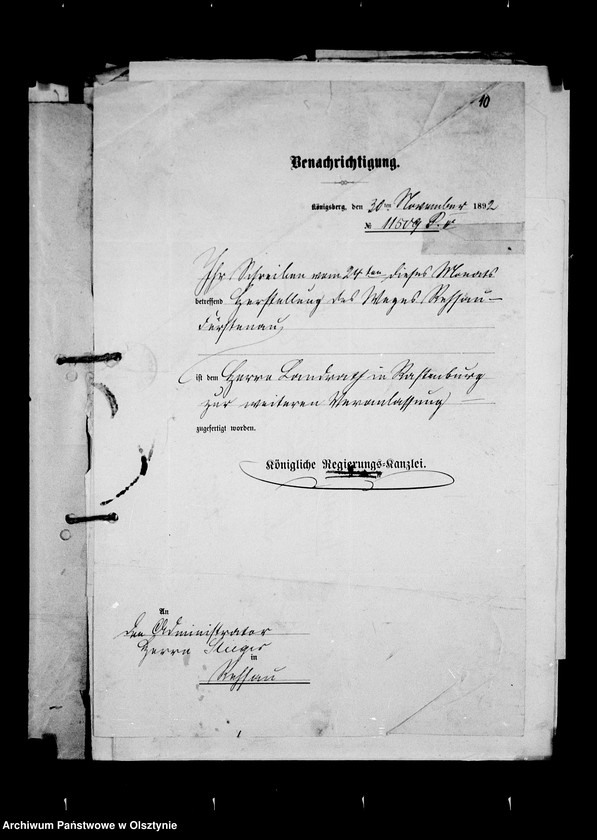 10
Benachrichtigung.
Königsberg, den 30ten November 1892
№ 11509
Ihr Schreiben vom 24ten dieses Monats
betreffend Herstellung des Weges Rehsau-
Fürstenau
ist dem Herrn Landrath in Rastenburg
zur weiteren Veranlassung
zugefertigt worden.
Königliche Regierungs-Kanzlei.
An
den Administrator
Herrn
in
Rehsau
1
Archiwum Państwowe w Olsztynie